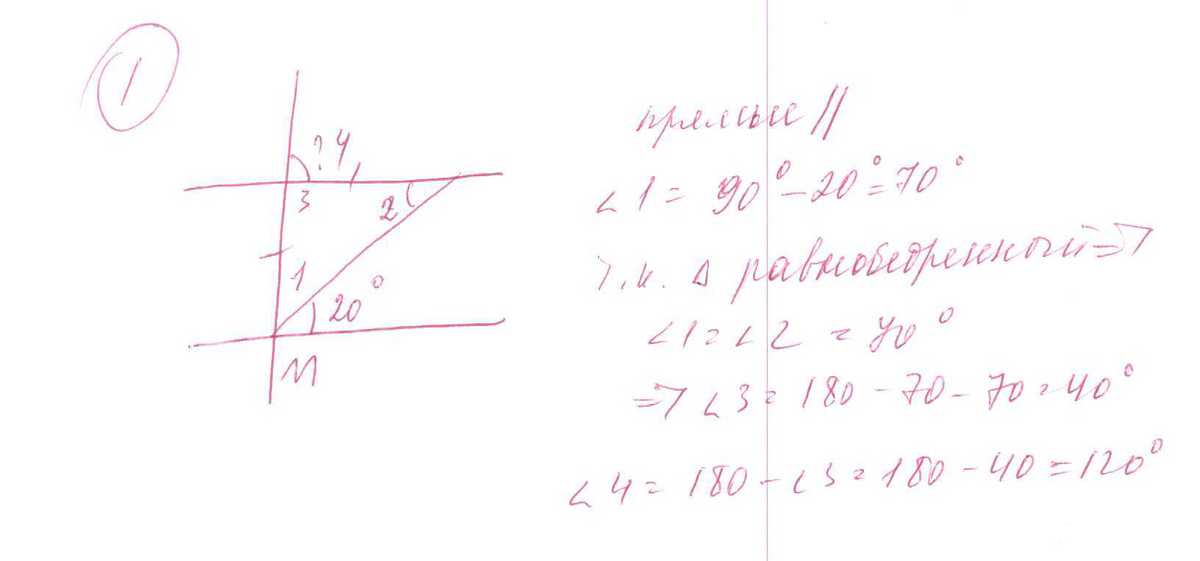 1
? 4
3
2
1
20°
M
прямые ||
∠1 = 90° - 20° = 70°
т.к. Δ равнобедренный =>
∠1 = ∠2 = 70°
=> ∠3 = 180 - 70 - 70 = 40°
∠4 = 180 - ∠3 = 180 - 40 = 120°